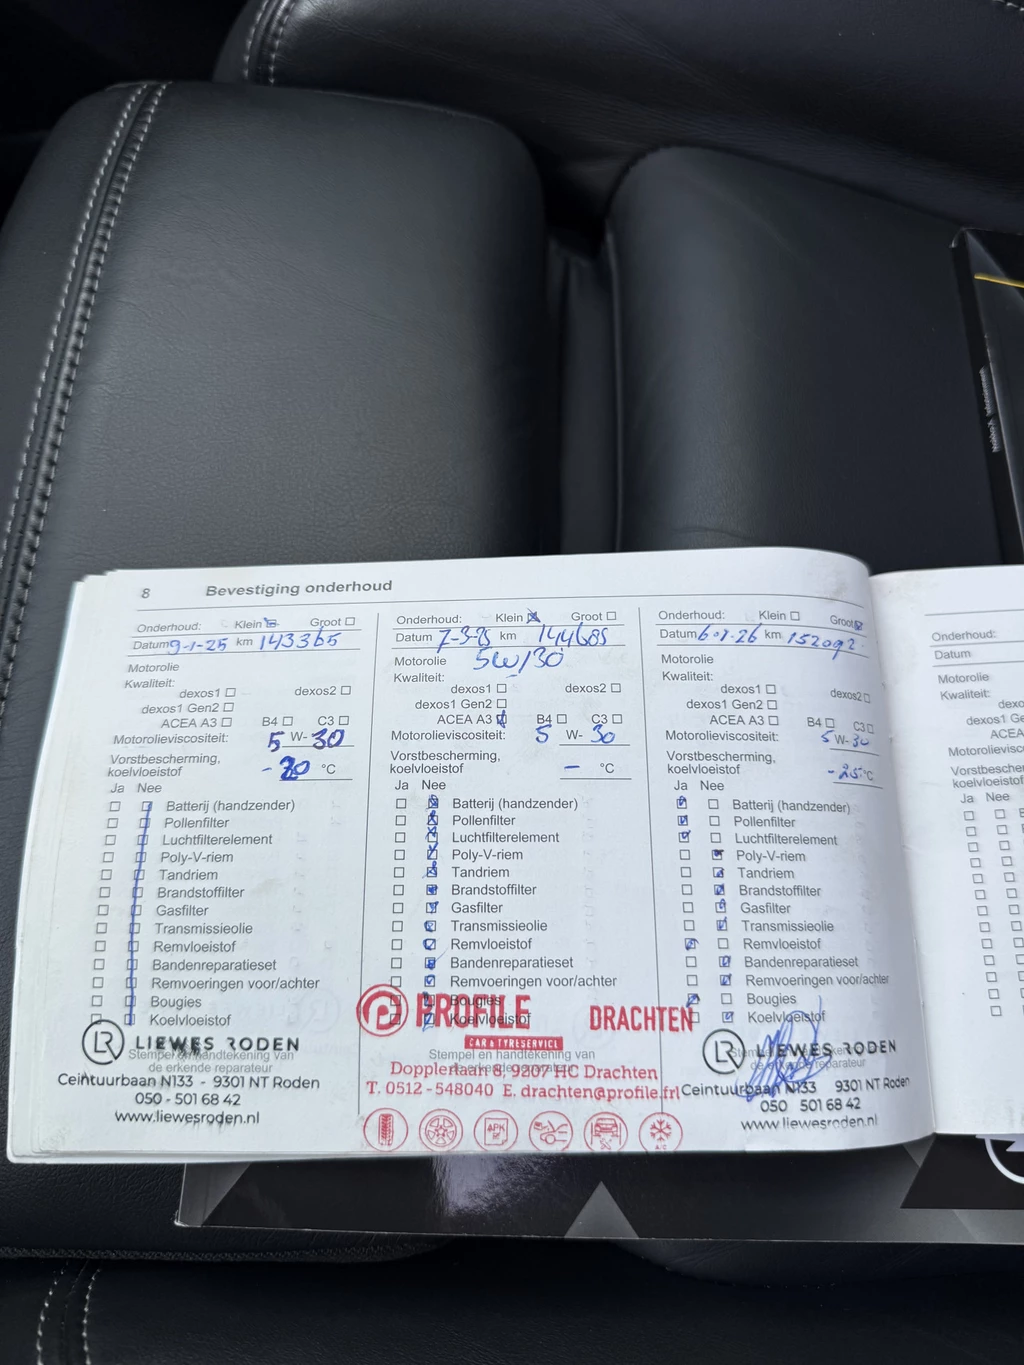 8 Bevestiging onderhoud
Onderhoud: Klein Groot
Datum 9-1-25 km 143365
Motorolie
Kwaliteit:
dexos1 dexos2
dexos1 Gen2
ACEA A3 B4 C3
Motorolieviscositeit: 5 W- 30
Vorstbescherming,
koelvloeistof - 30 °C
Ja Nee
Batterij (handzender)
Pollenfilter
Luchtfilterelement
Poly-V-riem
Tandriem
Brandstoffilter
Gasfilter
Transmissieolie
Remvloeistof
Bandenreparatieset
Remvoeringen voor/achter
Bougies
Koelvloeistof
LR LIEWES RODEN
Stempel en handtekening van
de erkende reparateur
Ceintuurbaan N133 - 9301 NT Roden
050 - 501 68 42
www.liewesroden.nl
Onderhoud: Klein Groot
Datum 7-3-25 km 144685
Motorolie 5W/30
Kwaliteit:
dexos1 dexos2
dexos1 Gen2
ACEA A3 B4 C3
Motorolieviscositeit: 5 W- 30
Vorstbescherming,
koelvloeistof - °C
Ja Nee
Batterij (handzender)
Pollenfilter
Luchtfilterelement
Poly-V-riem
Tandriem
Brandstoffilter
Gasfilter
Transmissieolie
Remvloeistof
Bandenreparatieset
Remvoeringen voor/achter
Bougies
Koelvloeistof
PROFILE DRACHTEN
CAR & TYRESERVICE
Stempel en handtekening van
Dopplerlaan 8, 9207 HC Drachten
T. 0512-548040 E. drachten@profile.frl
APK
A/C
Onderhoud: Klein Groot
Datum 6-01-26 km 152092
Motorolie
Kwaliteit:
dexos1 dexos2
dexos1 Gen2
ACEA A3 B4 C3
Motorolieviscositeit: 5 W- 30
Vorstbescherming,
koelvloeistof -25 °C
Ja Nee
Batterij (handzender)
Pollenfilter
Luchtfilterelement
Poly-V-riem
Tandriem
Brandstoffilter
Gasfilter
Transmissieolie
Remvloeistof
Bandenreparatieset
Remvoeringen voor/achter
Bougies
Koelvloeistof
LR LIEWES RODEN
Ceintuurbaan N133 9301 NT Roden
050 501 68 42
www.liewesroden.nl
Onderhoud:
Datum
Motorolie
Kwaliteit:
Ja Nee